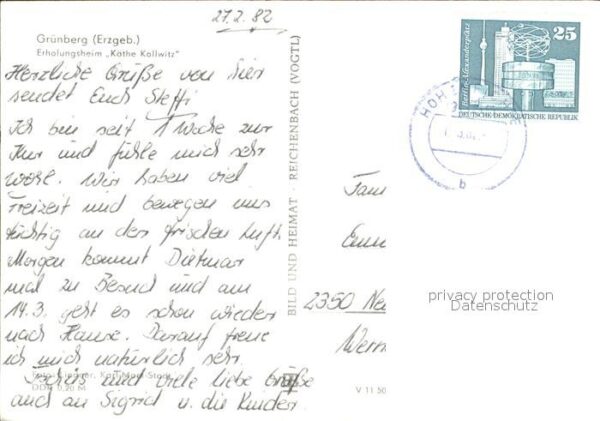 27.2.82
Grünberg (Erzgeb.)
Erholungsheim „Käthe Kollwitz"
Herzliche Grüße von hier
sendet Euch Steffi
Ich bin seit 1 Woche zur
Kur und fühle mich sehr
wohl. Wir haben viel
Freizeit und bewegen uns
tüchtig an der frischen Luft.
Morgen kommt Dietmar
mal zu Besuch und am
14.3. geht es schon wieder
nach Hause. Darauf freue
ich mich natürlich sehr.
Tschüs und viele liebe Grüße
auch an Sigrid u. die Kinder.
Karl-Marx-Stadt
DDR 0,20 M
BILD UND HEIMAT REICHENBACH (VOGTL)
V 11 50
25
Berlin-Alexanderplatz
DEUTSCHE DEMOKRATISCHE REPUBLIK
b
Fam
2350 Neu
Wern
privacy protection
Datenschutz